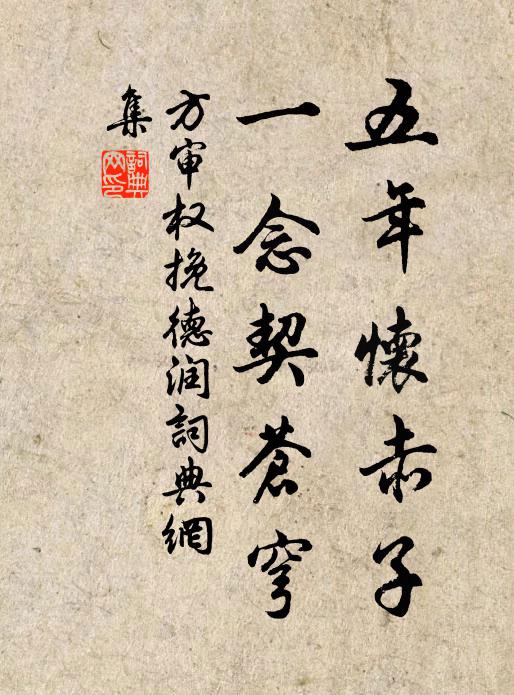 五年懷赤子
一念契蒼穹
方审权挽德润詞典網
集
詞典
网印